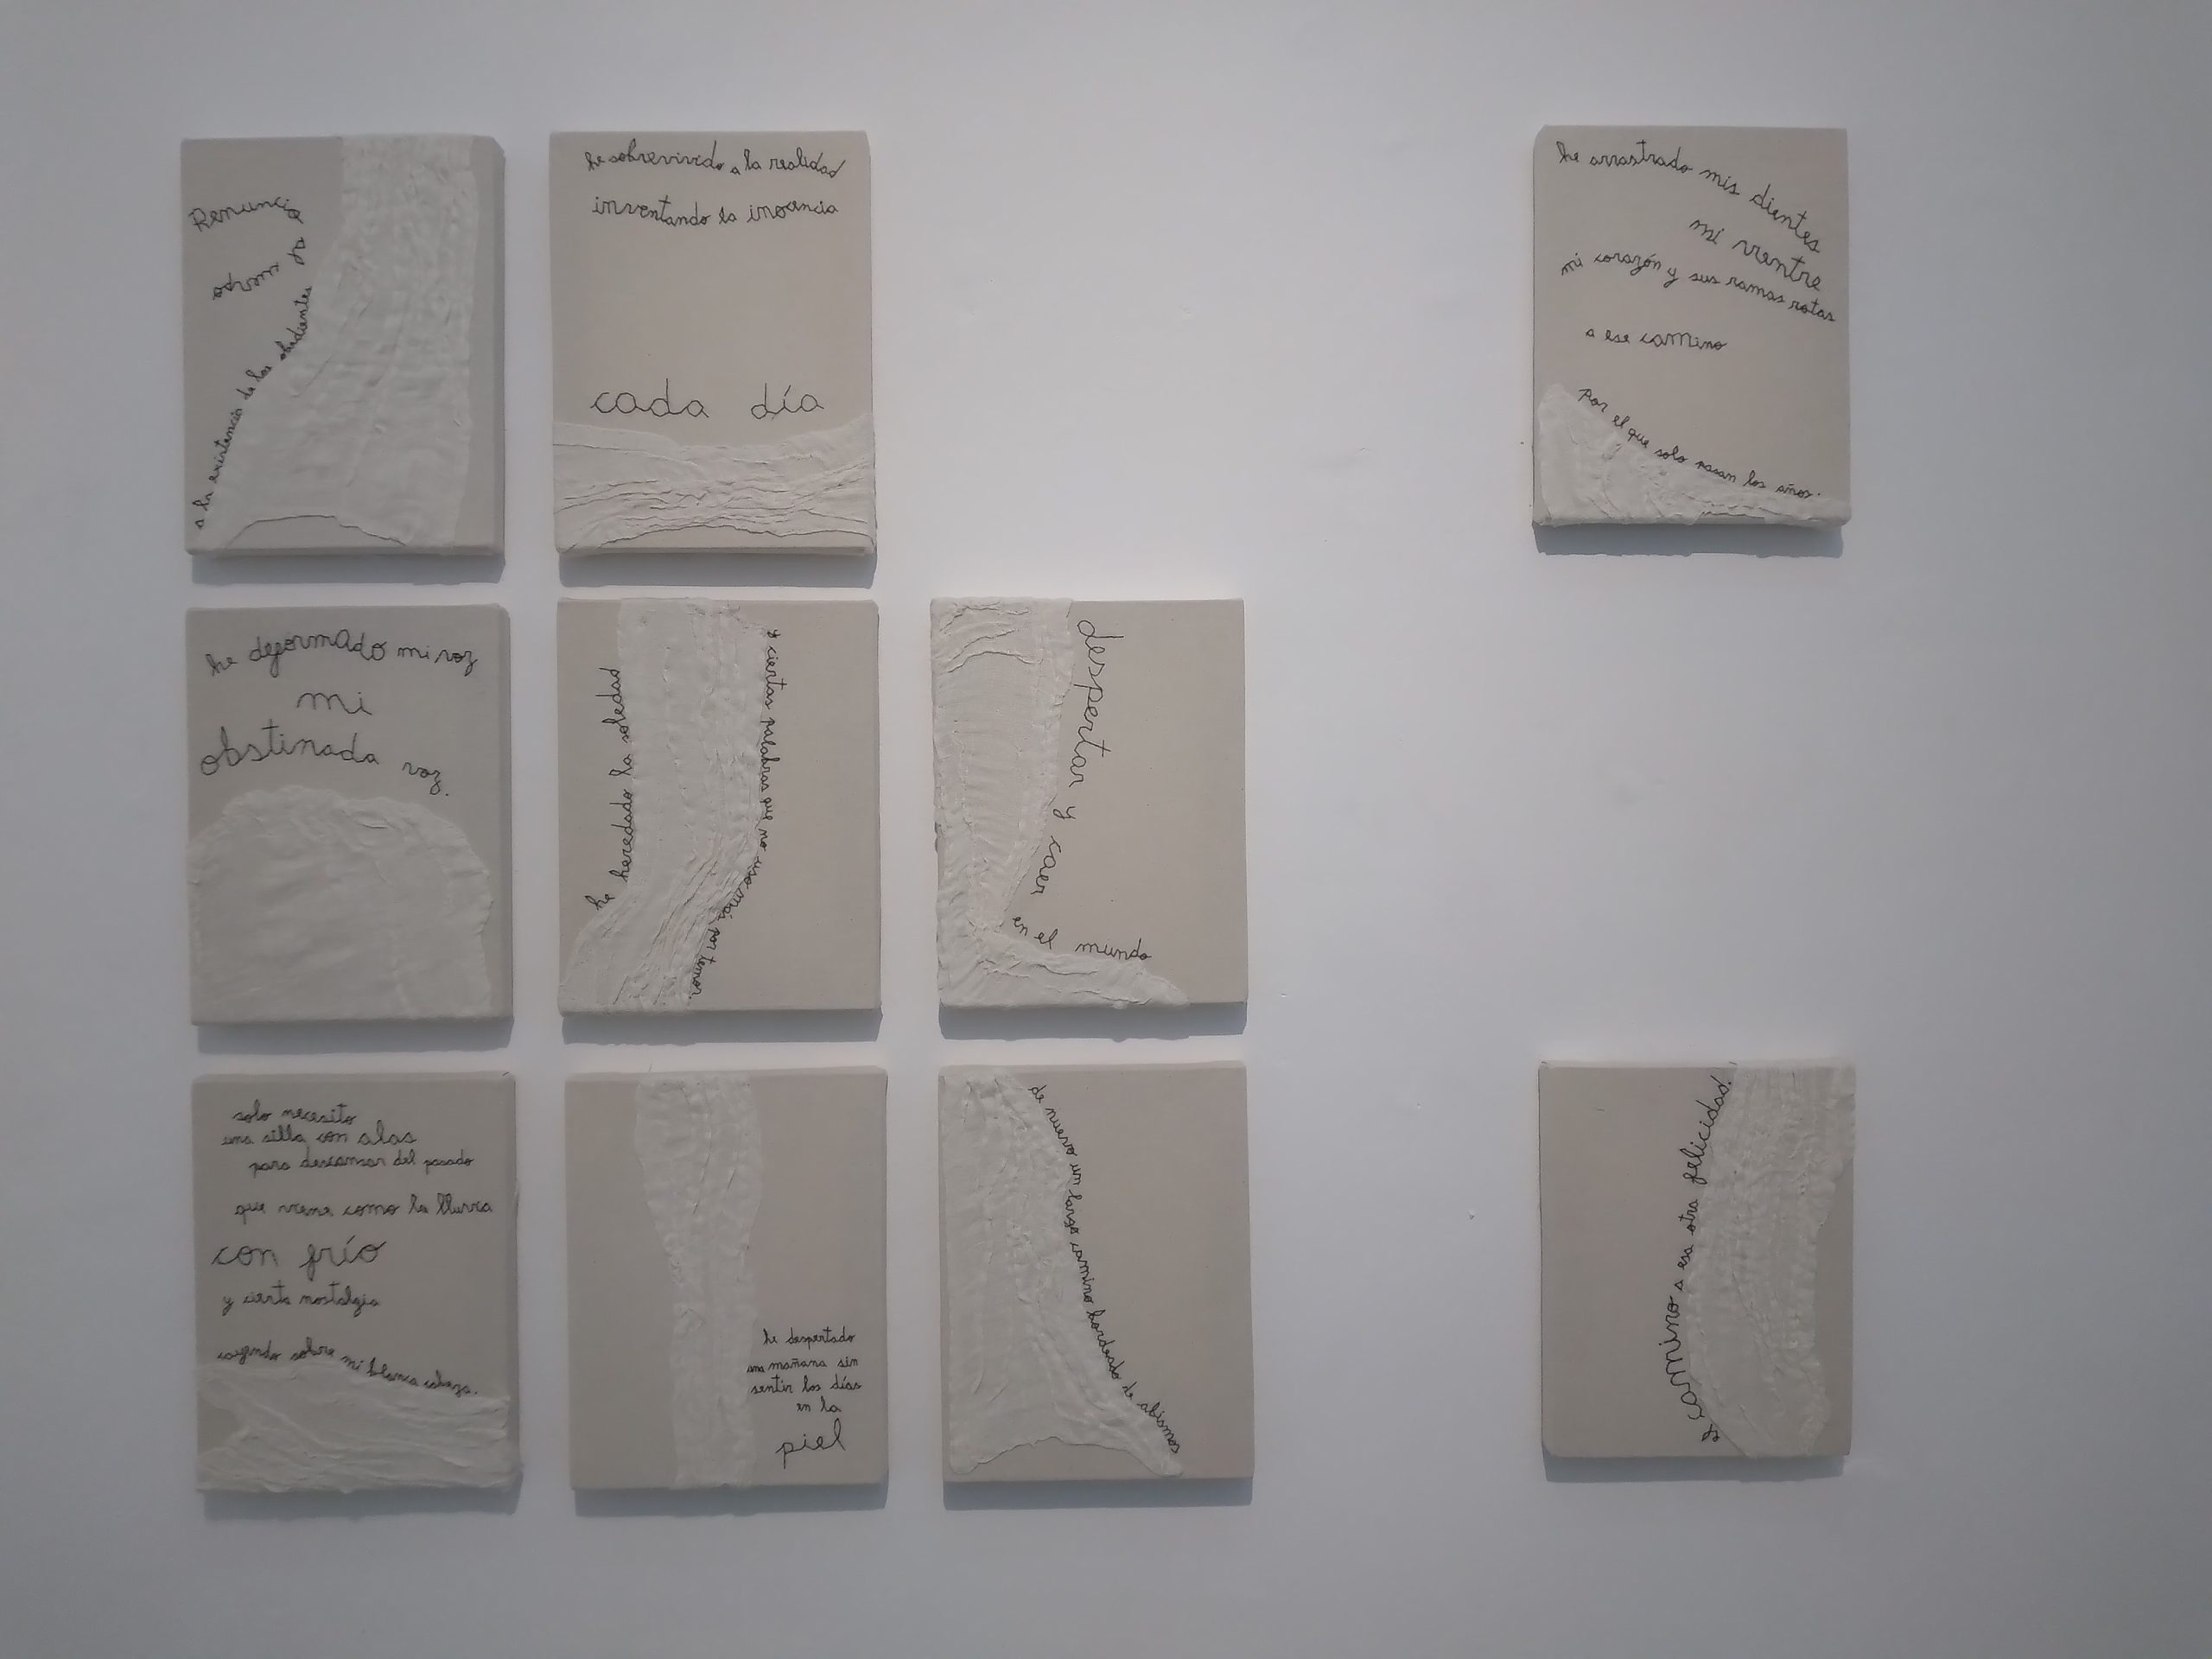 Renuncio
al miedo
a la existencia de los obedientes
he sobrevivido a la realidad
inventando la inocencia
cada día
he arrastrado mis dientes
mi vientre
mi corazón y sus ramas rotas
a ese camino
por el que solo pasan los años.
he deformado mi voz
mi
obstinada voz.
he heredado la soledad
y ciertas palabras que no uso más por temor.
despertar y caer
en el mundo
solo necesito
una silla con alas
para descansar del pasado
que viene como la lluvia
con frío
y cierta nostalgia
cayendo sobre mi blanca cabeza.
he despertado
una mañana sin
sentir los días
en la
piel
de nuevo un largo camino bordeado de abismos
el camino a esa otra felicidad.